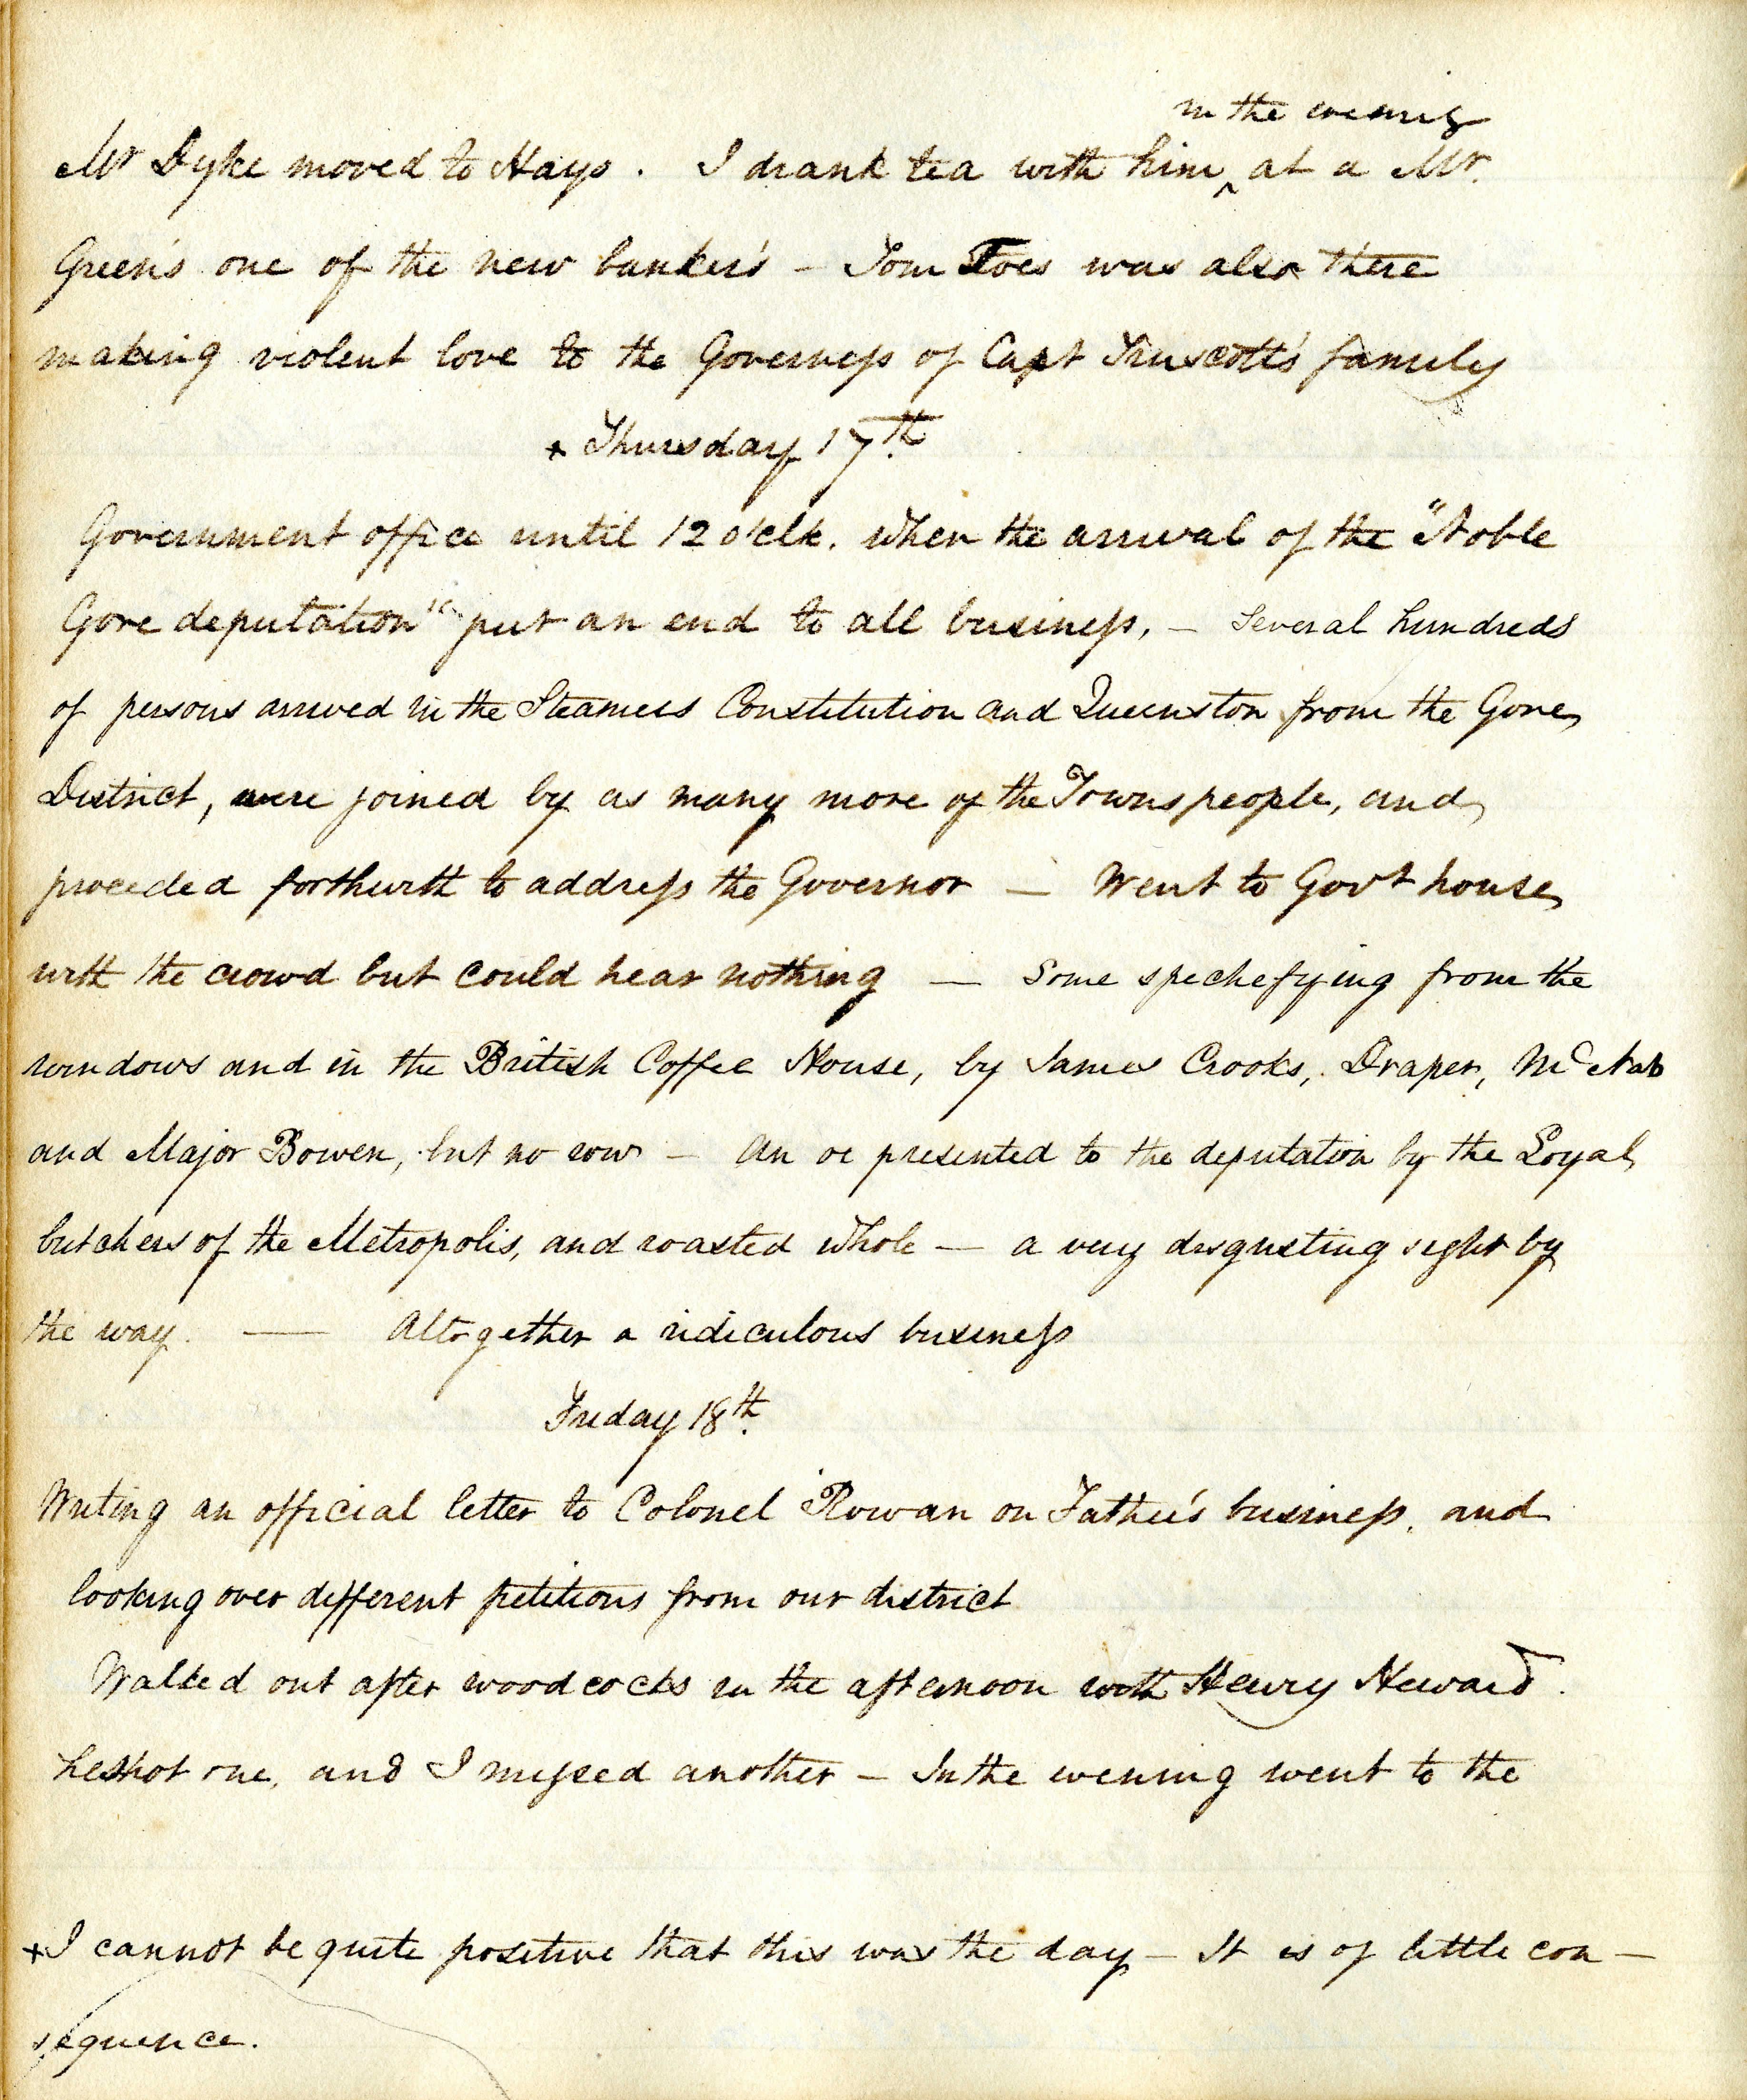 in the evening
Mr Dyke moved to Hays. I drank tea with him ^ at a Mr.
Green's one of the new banker's – Tom Toes was also there
making violent love to the Governess of Capt Truscott's family
+ Thursday 17th
Government office until 12 o'clk. when the arrival of the "Noble
Gore deputation" put an end to all business, – Several hundreds
of persons arrived in the Steamers Constitution and Queenston from the Gore
District, were joined by as many more of the Townspeople, and
proceeded forthwith to address the Governor — Went to Govt house
with the crowd but could hear nothing — Some spechefying from the
windows and in the British Coffee House, by James Crooks, Draper, McNab
and Major Bowen, but no row – An ox presented to the deputation by the Loyal
butchers of the Metropolis, and roasted whole — a very disgusting sight by
the way. —— Altogether a ridiculous business
Friday 18th.
Writing an official letter to Colonel Rowan on Father's business, and
looking over different petitions from our district
Walked out after woodcocks in the afternoon with Henry Heward.
he shot one, and I missed another – In the evening went to the
+ I cannot be quite positive that this was the day – It is of little con–
sequence.